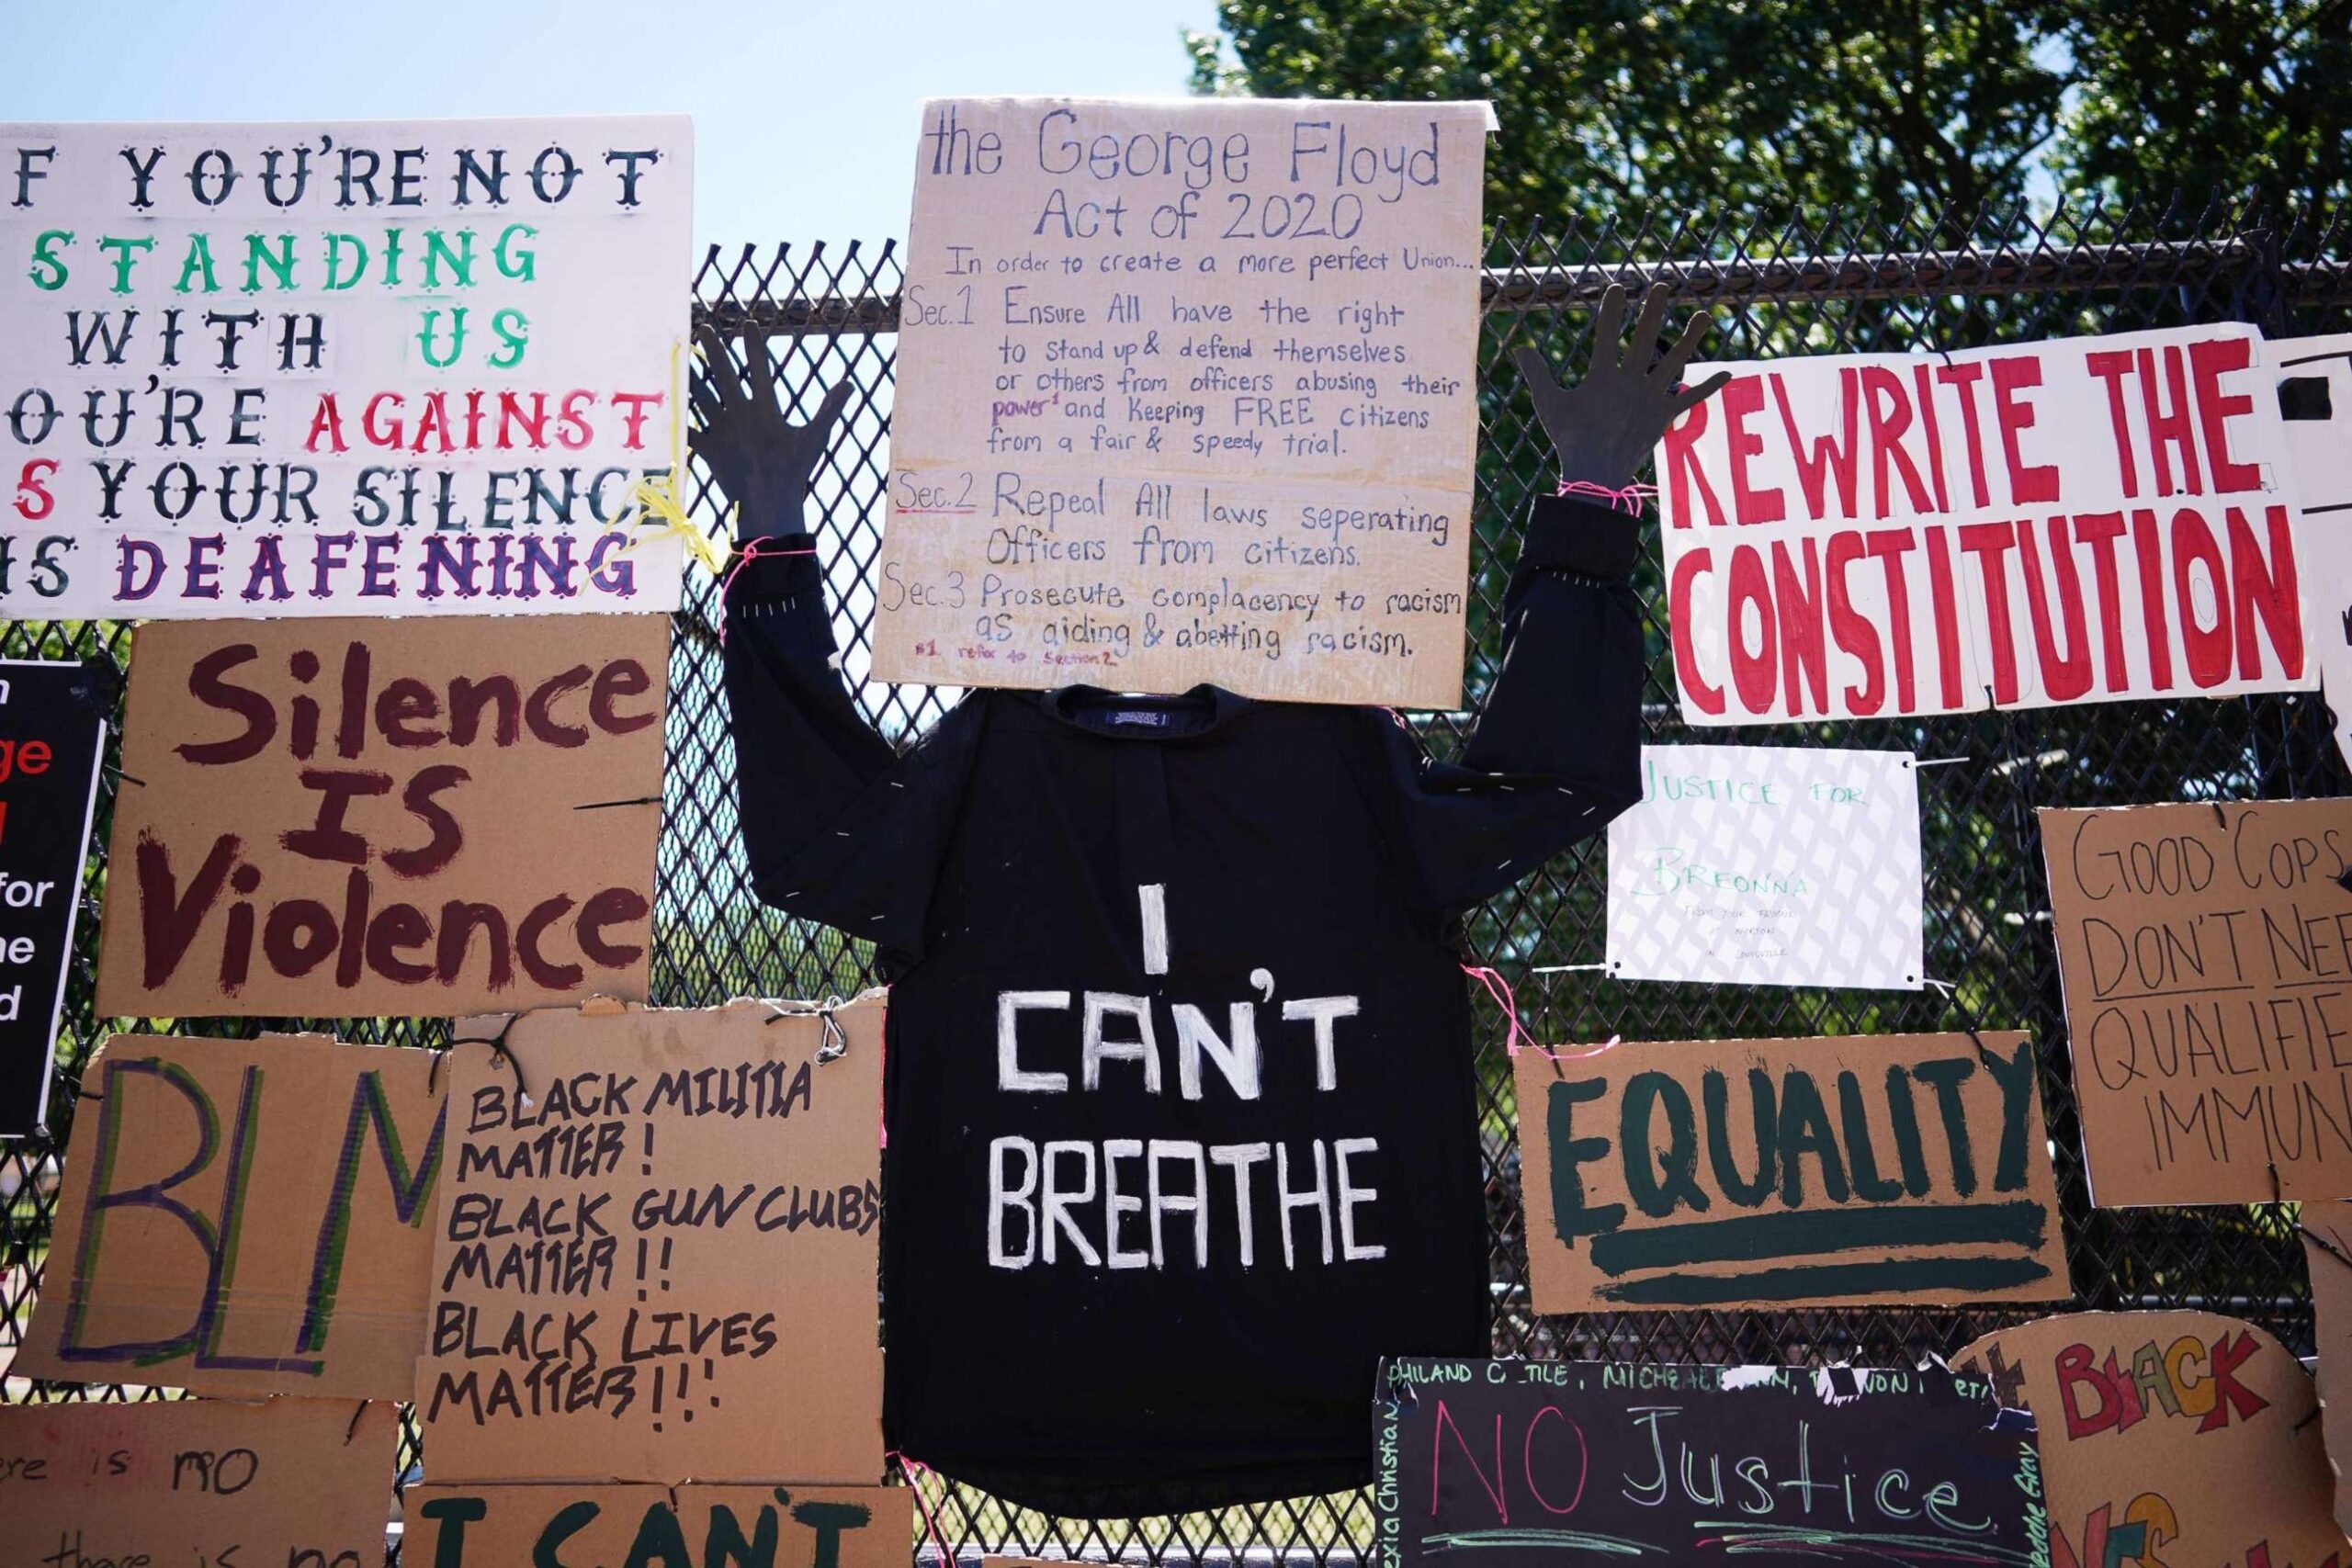 F YOU'RE NOT
STANDING
WITH US
OU'RE AGAINST
S YOUR SILENCE
IS DEAFENING
the George Floyd
Act of 2020
In order to create a more perfect Union...
Sec. 1 Ensure All have the right
to stand up & defend themselves
or others from officers abusing their
power¹ and Keeping FREE citizens
from a fair & speedy trial.
Sec. 2 Repeal All laws seperating
Officers from citizens.
Sec. 3 Prosecute complacency to racism
as aiding & abetting racism.
*1 refer to Section 2
REWRITE THE
CONSTITUTION
ge
for
d
Silence
IS
Violence
I
CAN'T
BREATHE
JUSTICE FOR
BREONNA
FROM YOUR FRIENDS
AT NORTON
IN LOUISVILLE
GOOD COPS
DON'T NEE
QUALIFIE
IMMUN
BLM
BLACK MILITIA
MATTER!
BLACK GUN CLUBS
MATTER!!
BLACK LIVES
MATTER!!!
EQUALITY
ere is no
there is no
I CAN'T
PHILAND C TILE, MICHEAL
NO Justice
exia Christian
Gray
# BLACK